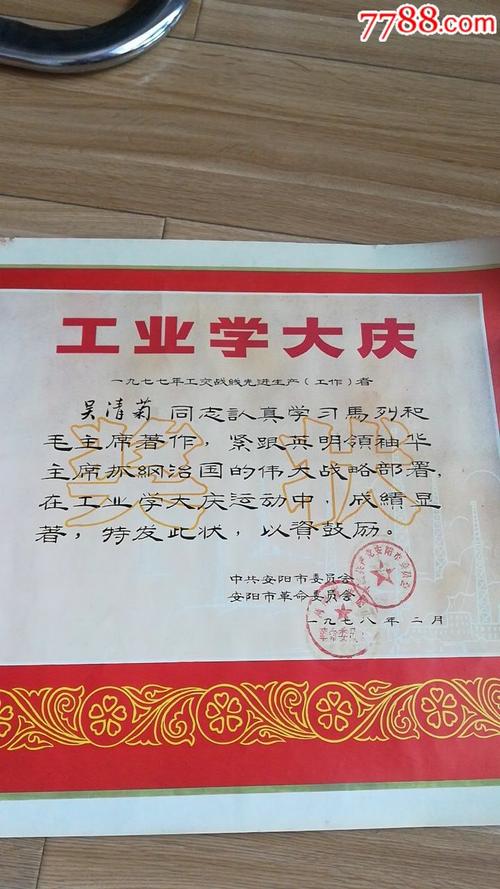 7788.com
工业学大庆
一九七七年工交战线先进生产（工作）者
奖状
吴清菊同志認真学习馬列和
毛主席著作，紧跟英明領袖华
主席抓綱治国的伟大战略部署，
在工业学大庆运动中，成績显
著，特发此状，以資鼓励。
中共安阳市委员会
安阳市革命委员会
一九七八年二月